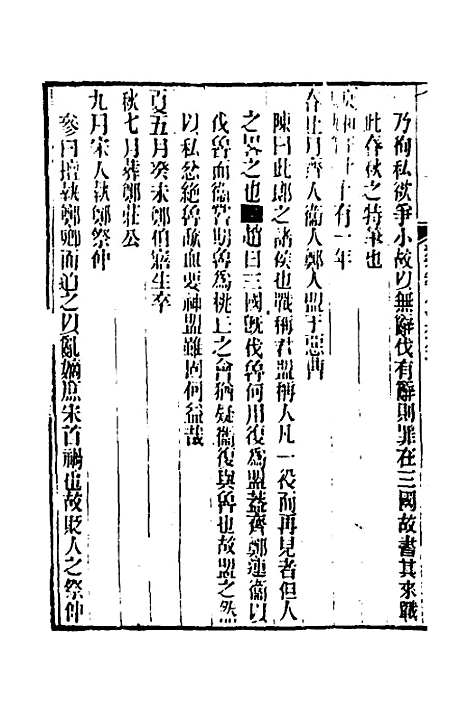 乃徇私欲爭小故以無辭伐有辭則罪在三國故書其來戰
此春秋之特筆也
十有一年
正月齊人衞人鄭人盟于惡曹
陳曰此郎之諸侯也戰稱君盟稱人凡一役而再見者但人
之畧之也 趙曰三國旣伐魯何用復爲盟蓋齊鄭連衞以
伐魯而衞嘗期魯爲桃丘之會猶疑衞復與魯也故盟之然
以私忿絕魯歃血要神盟雖固何益哉
夏五月癸未鄭伯寤生卒
秋七月葬鄭莊公
九月宋人執鄭祭仲
參曰擅執鄭卿而迫之以亂嫡庶宋首禍也故貶人之祭仲